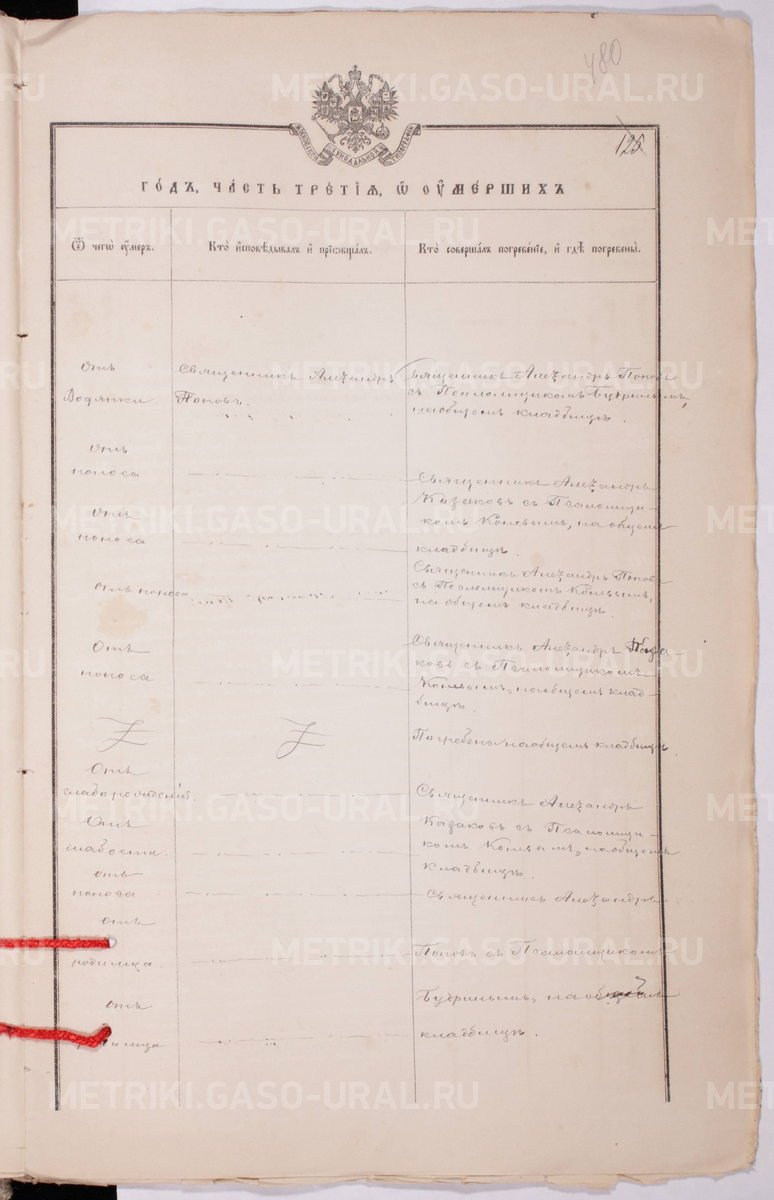 480
125.
МОСКОВСКОЙ СѴНОДАЛЬНОЙ ТИПОГРАФІИ
ГОДЪ, ЧАСТЬ ТРЕТІЯ, Ѿ ОУМЕРШИХЪ
Ѿ чегѡ оумеръ.
Кто исповѣдывалъ и приобщалъ.
Кто совершалъ погребеніе, и гдѣ погребены.
Отъ
Водянки
Священникъ Александръ
Поповъ.
Священникъ Александръ Поповъ
съ Псаломщикомъ Будринымъ,
на общемъ кладбищѣ.
Отъ
поноса
Отъ
поноса
Священникъ Александръ
Казаковъ съ Псаломщи-
комъ Коневымъ, на общемъ
кладбищѣ.
Отъ поноса
Священникъ Александръ Поповъ
съ Псаломщикомъ Коневымъ,
на общемъ кладбищѣ.
Отъ
поноса
Священникъ Александръ Каза-
ковъ съ Псаломщикомъ
Коневымъ, на общемъ клад-
бищѣ.
Погребено на общемъ кладбищѣ.
Отъ
слаборожденій.
Отъ
слабости
Священникъ Александръ
Казаковъ съ Псаломщи-
комъ Коневымъ, на общемъ
кладбищѣ.
отъ
поноса
Священникъ Александръ
отъ
родимца
Поповъ съ Псаломщикомъ
отъ
родимца
Будринымъ, на общемъ
кладбищѣ.
METRIKI.GASO-URAL.RU